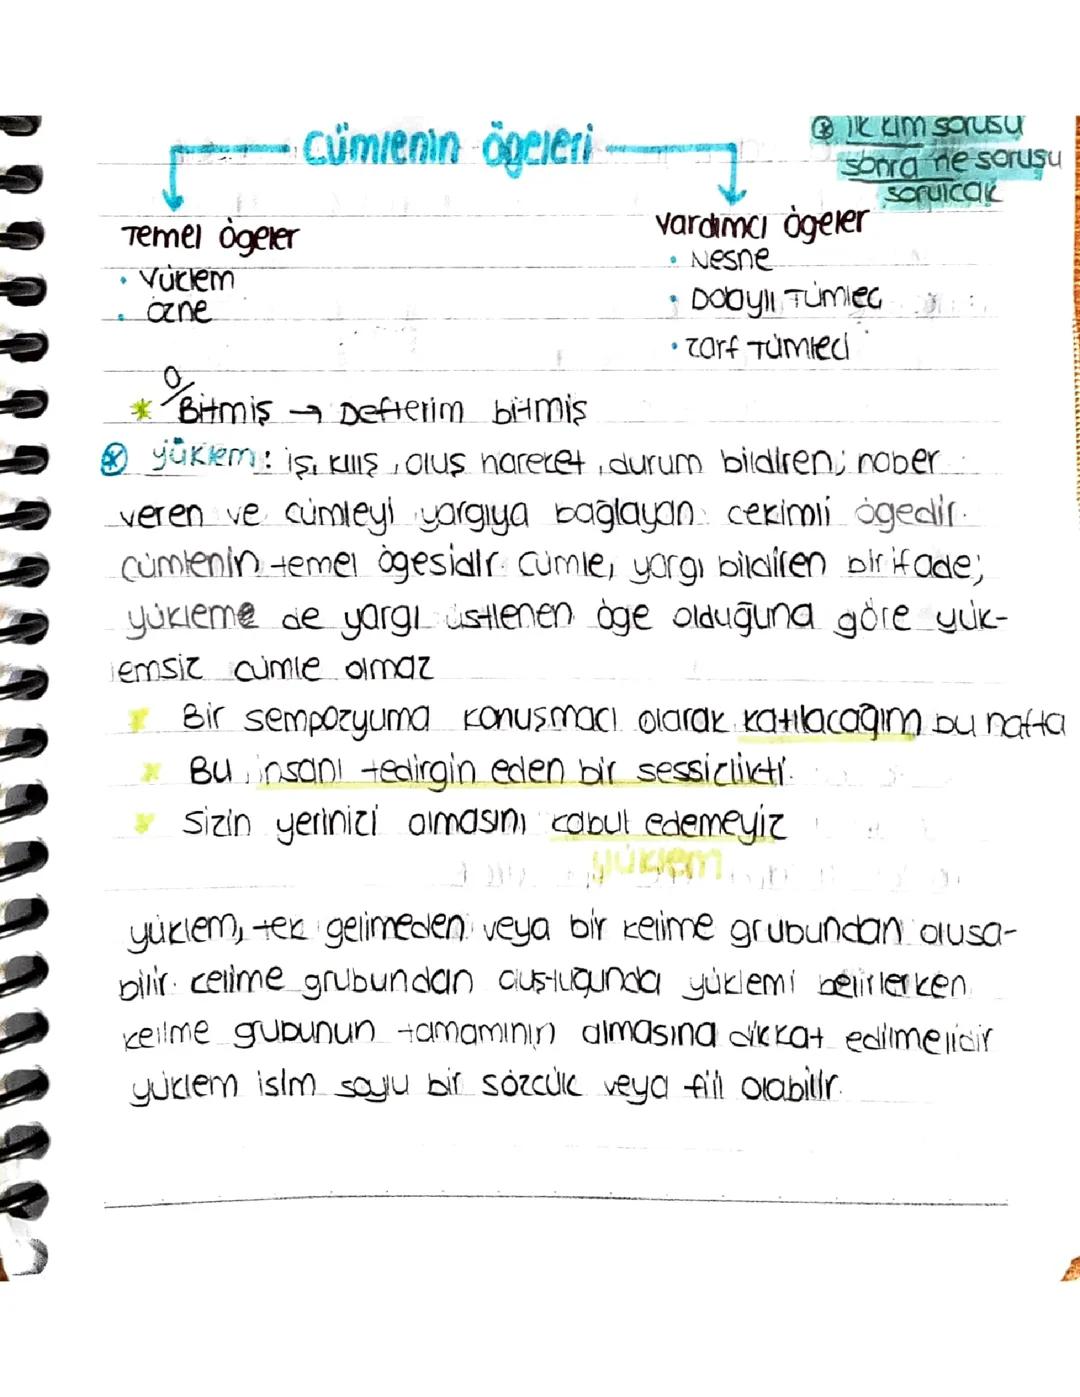 Cümlenin ögeleri
* ilk kim sorusu
sonra ne sorusu
sorulcak
Temel ögeler
• Yüklem
• Özne
Yardımcı ögeler
• Nesne
• Dolaylı Tümlec
• Zarf Tümleci
O
* Bitmiş → Defterim bitmiş
* yüklem: iş, kılış, oluş hareket, durum bildiren; haber
veren ve cümleyi yargıya bağlayan çekimli ögedir.
Cümlenin temel ögesidir. Cümle, yargı bildiren bir ifade;
yükleme de yargı üstlenen öge olduğuna göre yük-
lemsiz cümle olmaz
* Bir sempozyuma konuşmacı olarak katılacağım bu hafta
* Bu, insanı tedirgin eden bir sessizlikti.
* Sizin yerinizi almasını kabul edemeyiz
yüklem
yüklem, tek gelimeden veya bir kelime grubundan olusa-
bilir. Kelime grubundan oluştuğunda yüklemi belirlerken
kelime grubunun tamamının almasına dikkat edilmelidir
yüklem isim soylu bir sözcük veya fiil olabilir.